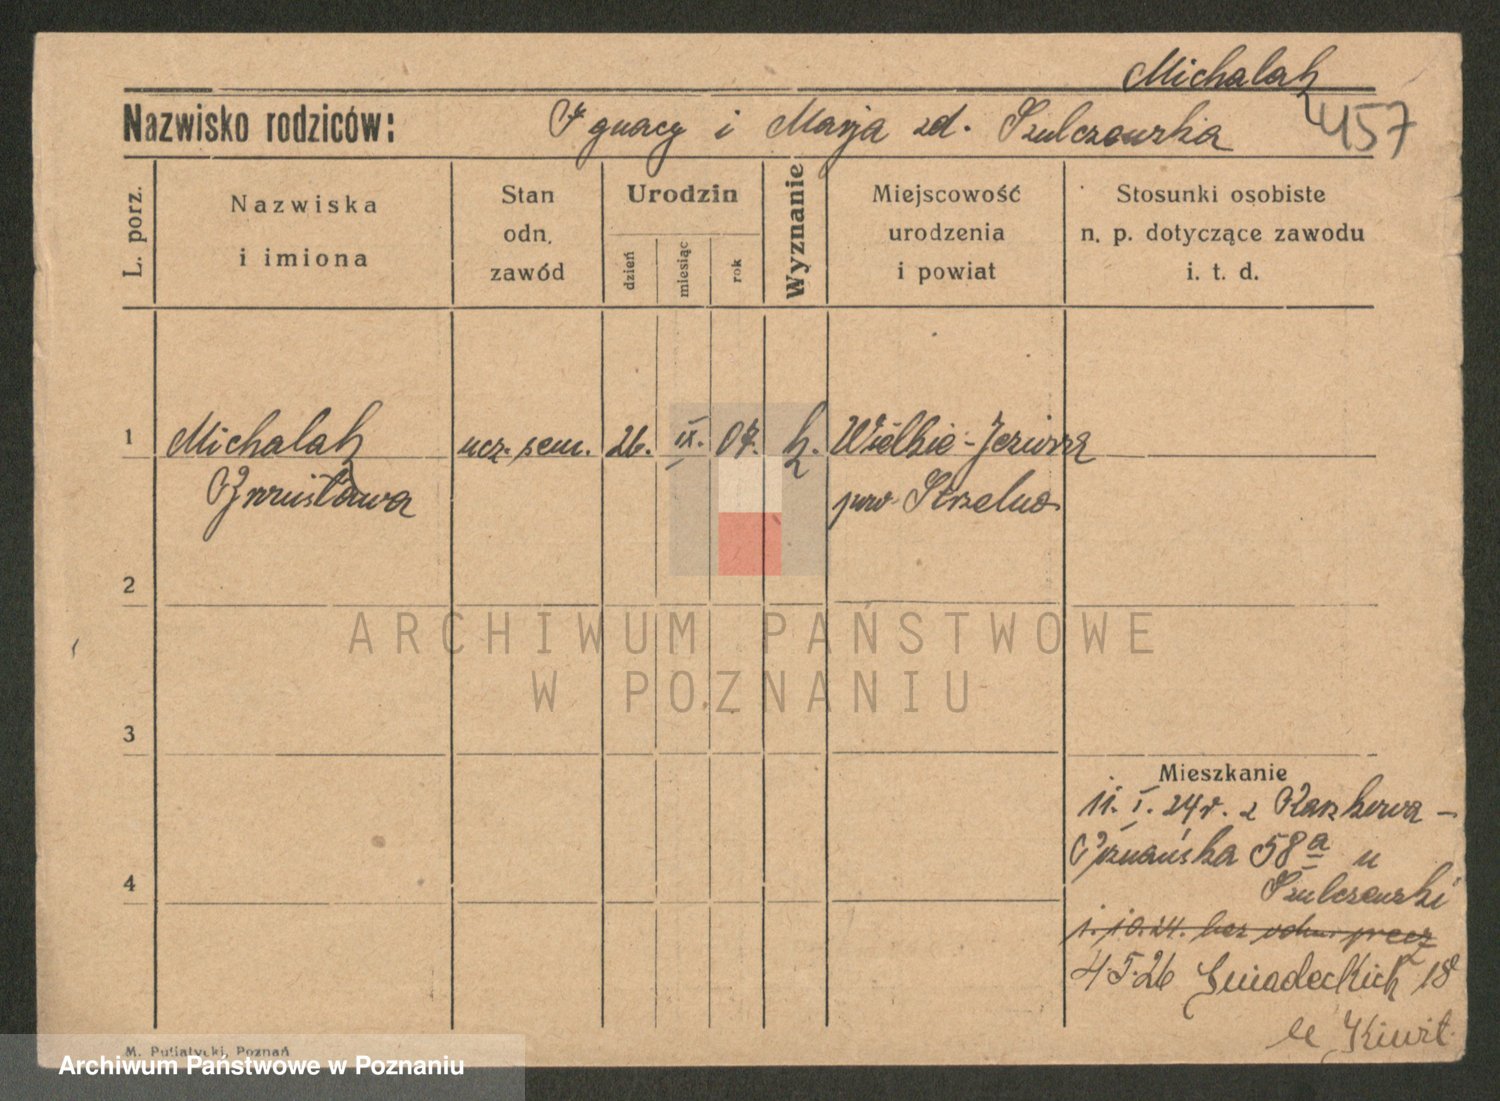 Michalak
Nazwisko rodziców: Ignacy i Marja zd. Szulczewska 457
L. porz.
Nazwiska
i imiona
Stan
odn.
zawód
Urodzin
dzień
miesiąc
rok
Wyznanie
Miejscowość
urodzenia
i powiat
Stosunki osobiste
n. p. dotyczące zawodu
i. t. d.
1 Michalak ucz. sem. 26. IX. 07. k. Wielkie-Jeziora
pow. Strzelno
2
ARCHIWUM PAŃSTWOWE
W POZNANIU
3
Mieszkanie
11. I. 24 r. z
Poznańska 58a u
4
Szulczewski
1. 10. 24. bez precz
4 5. 26 Śniadeckich 18
u
M. Putiatycki, Poznań
Archiwum Państwowe w Poznaniu